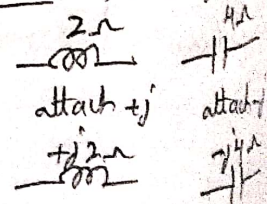 2Ω 4Ω
attach +j attach -j
+j2Ω -j4Ω